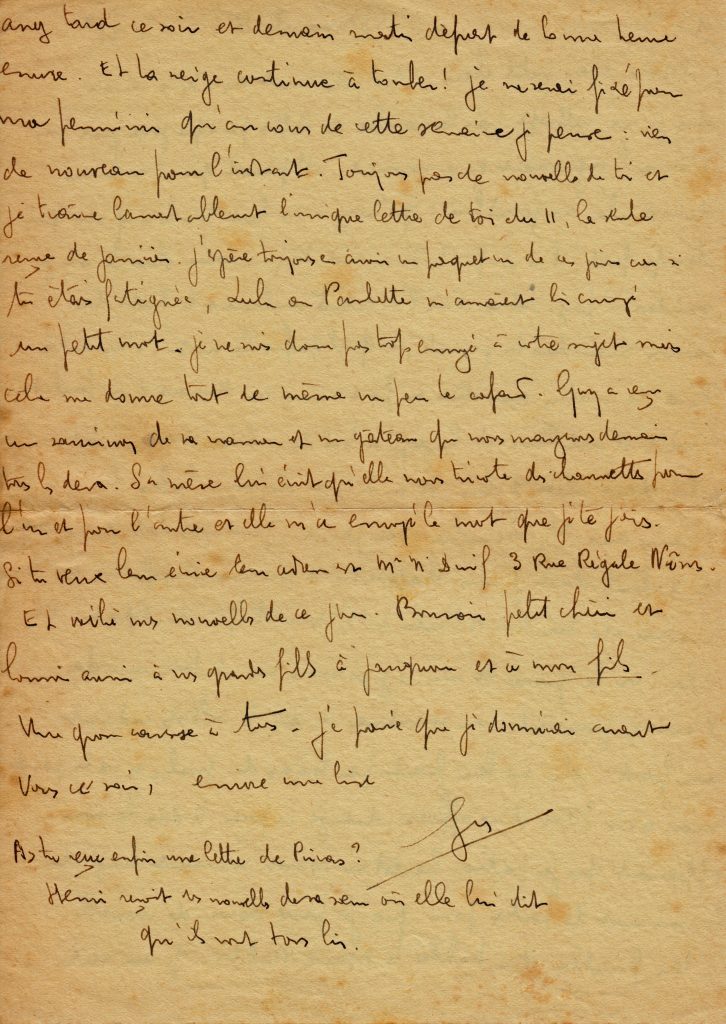 assez tard ce soir et demain matin départ de bonne heure
encore. Et la neige continue à tomber! je ne serai fixé pour
ma permission qu'au cours de cette semaine je pense : rien
de nouveau pour l'instant. Toujours pas de nouvelles de toi et
je traîne lamentablement l'unique lettre de toi du 11, la seule
reçue de janvier. j'espère toujours en avoir un paquet un de ces jours car si
tu étais fatiguée, Lulu ou Paulette m'auraient bien envoyé
un petit mot. je ne suis donc pas trop ennuyé à votre sujet mais
cela me donne tout de même un peu le cafard. Guy a reçu
un de sa maman et un gâteau que nous mangerons demain
tous les deux. Sa mère lui écrit qu'elle nous tricote des chaussettes pour
l'un et pour l'autre et elle m'a envoyé le mot que je te joins.
Si tu veux leur écrire leur adresse est Mr 3 Rue Régale Nîmes.
Et voilà mes nouvelles de ce jour. Bonsoir petit chéri et
bonsoir aussi à nos grandes filles à et à mon fils.
Une grosse caresse à tous. je parie que je dormirai avant
vous ce soir, encore une bise
As tu reçu enfin une lettre de ?
Henri reçoit des nouvelles de sa sœur où elle lui dit
qu'ils vont tous bien.